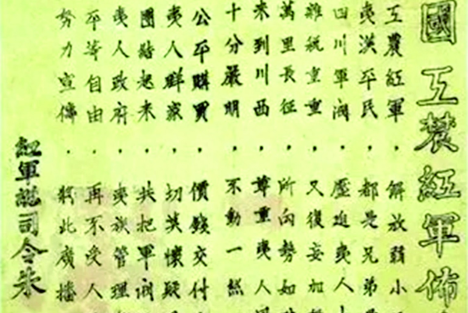 國工農紅軍佈
工農紅軍．解放弱小
夷漢平民．都是兄弟
四川軍閥．壓迫夷人
雜稅重重．又復妄加
萬里長征．所向勢如
來到川西．尊重夷人
十分嚴明．不動一絲
公平購買．價錢交付
夷人群衆．切莫懷疑
團結起來．共把軍閥
夷人政府．夷族管理
平等自由．再不受人
努力宣傳．將此廣播
紅軍總司令朱